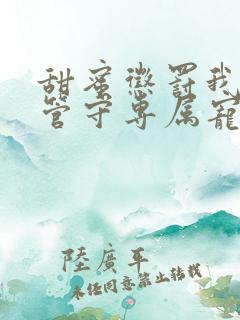 甜蜜懲罰我
管守專屬寵
陸廣平
未經同意禁止轉載